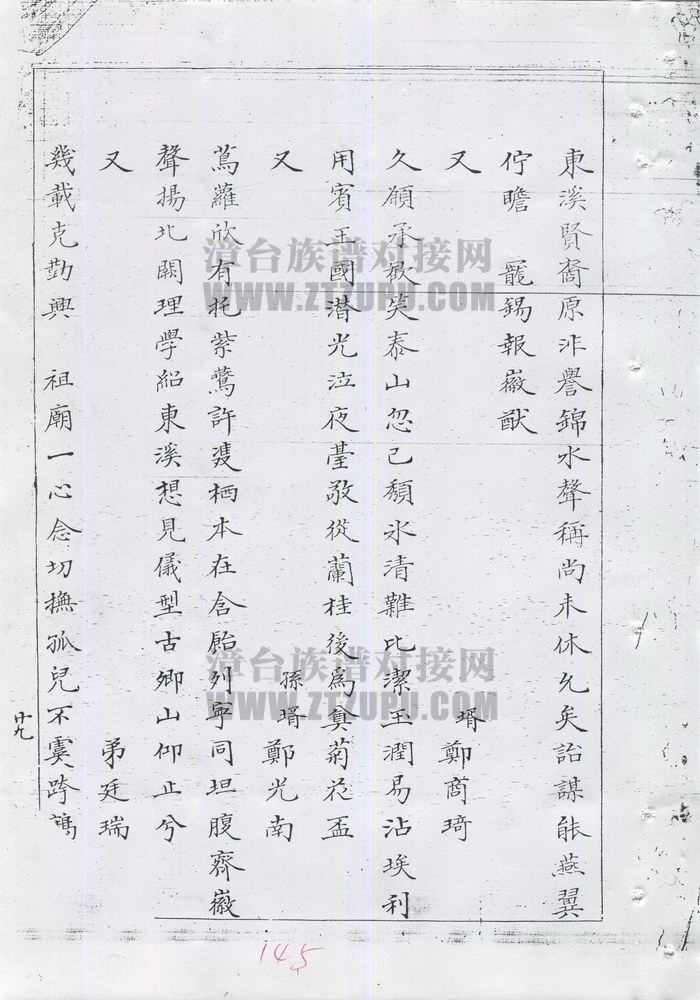 東溪賢裔原非譽錦水聲稱尚未休允矣詒謀能燕翼
佇瞻　寵錫報徽猷
又　壻鄭商琦
久願承歡笑泰山忽已頹氷清難比潔玉潤易沾埃利
用賓王國潛光泣夜臺敬從蘭桂後爲奠菊花盃
又　孫壻鄭光南
蔦蘿欣有托紫鶯許雙栖本在含飴列寧同坦腹齊徽
聲揚北闕理學紹東溪想見儀型古鄉山仰止兮
又　弟廷瑞
幾載克勤興　祖廟一心念切撫孤兒不虞跨鶴
廿九
145
漳台族谱对接网
WWW.ZTZUPU.COM
漳台族谱对接网
WWW.ZTZUPU.COM